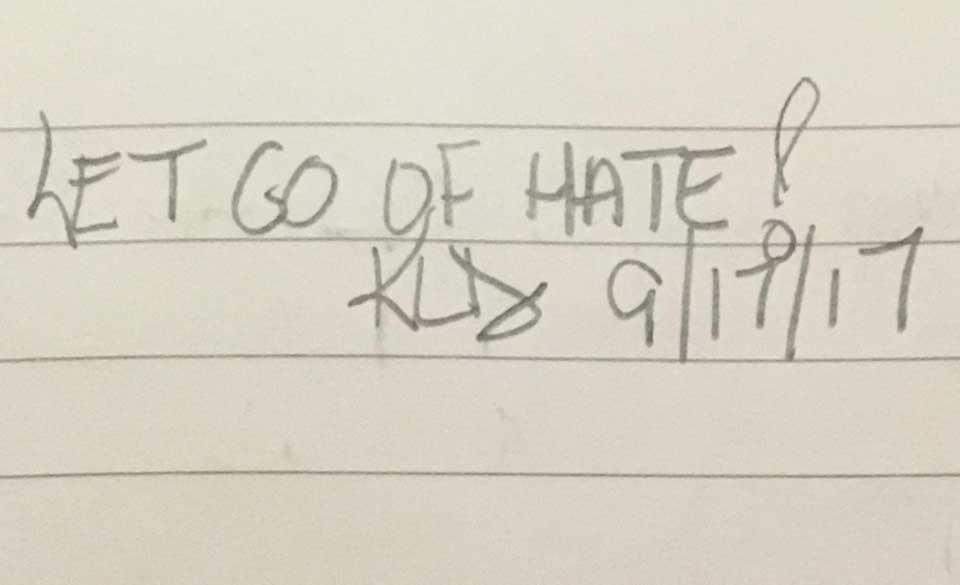 LET GO OF HATE!
KLD 9/17/17